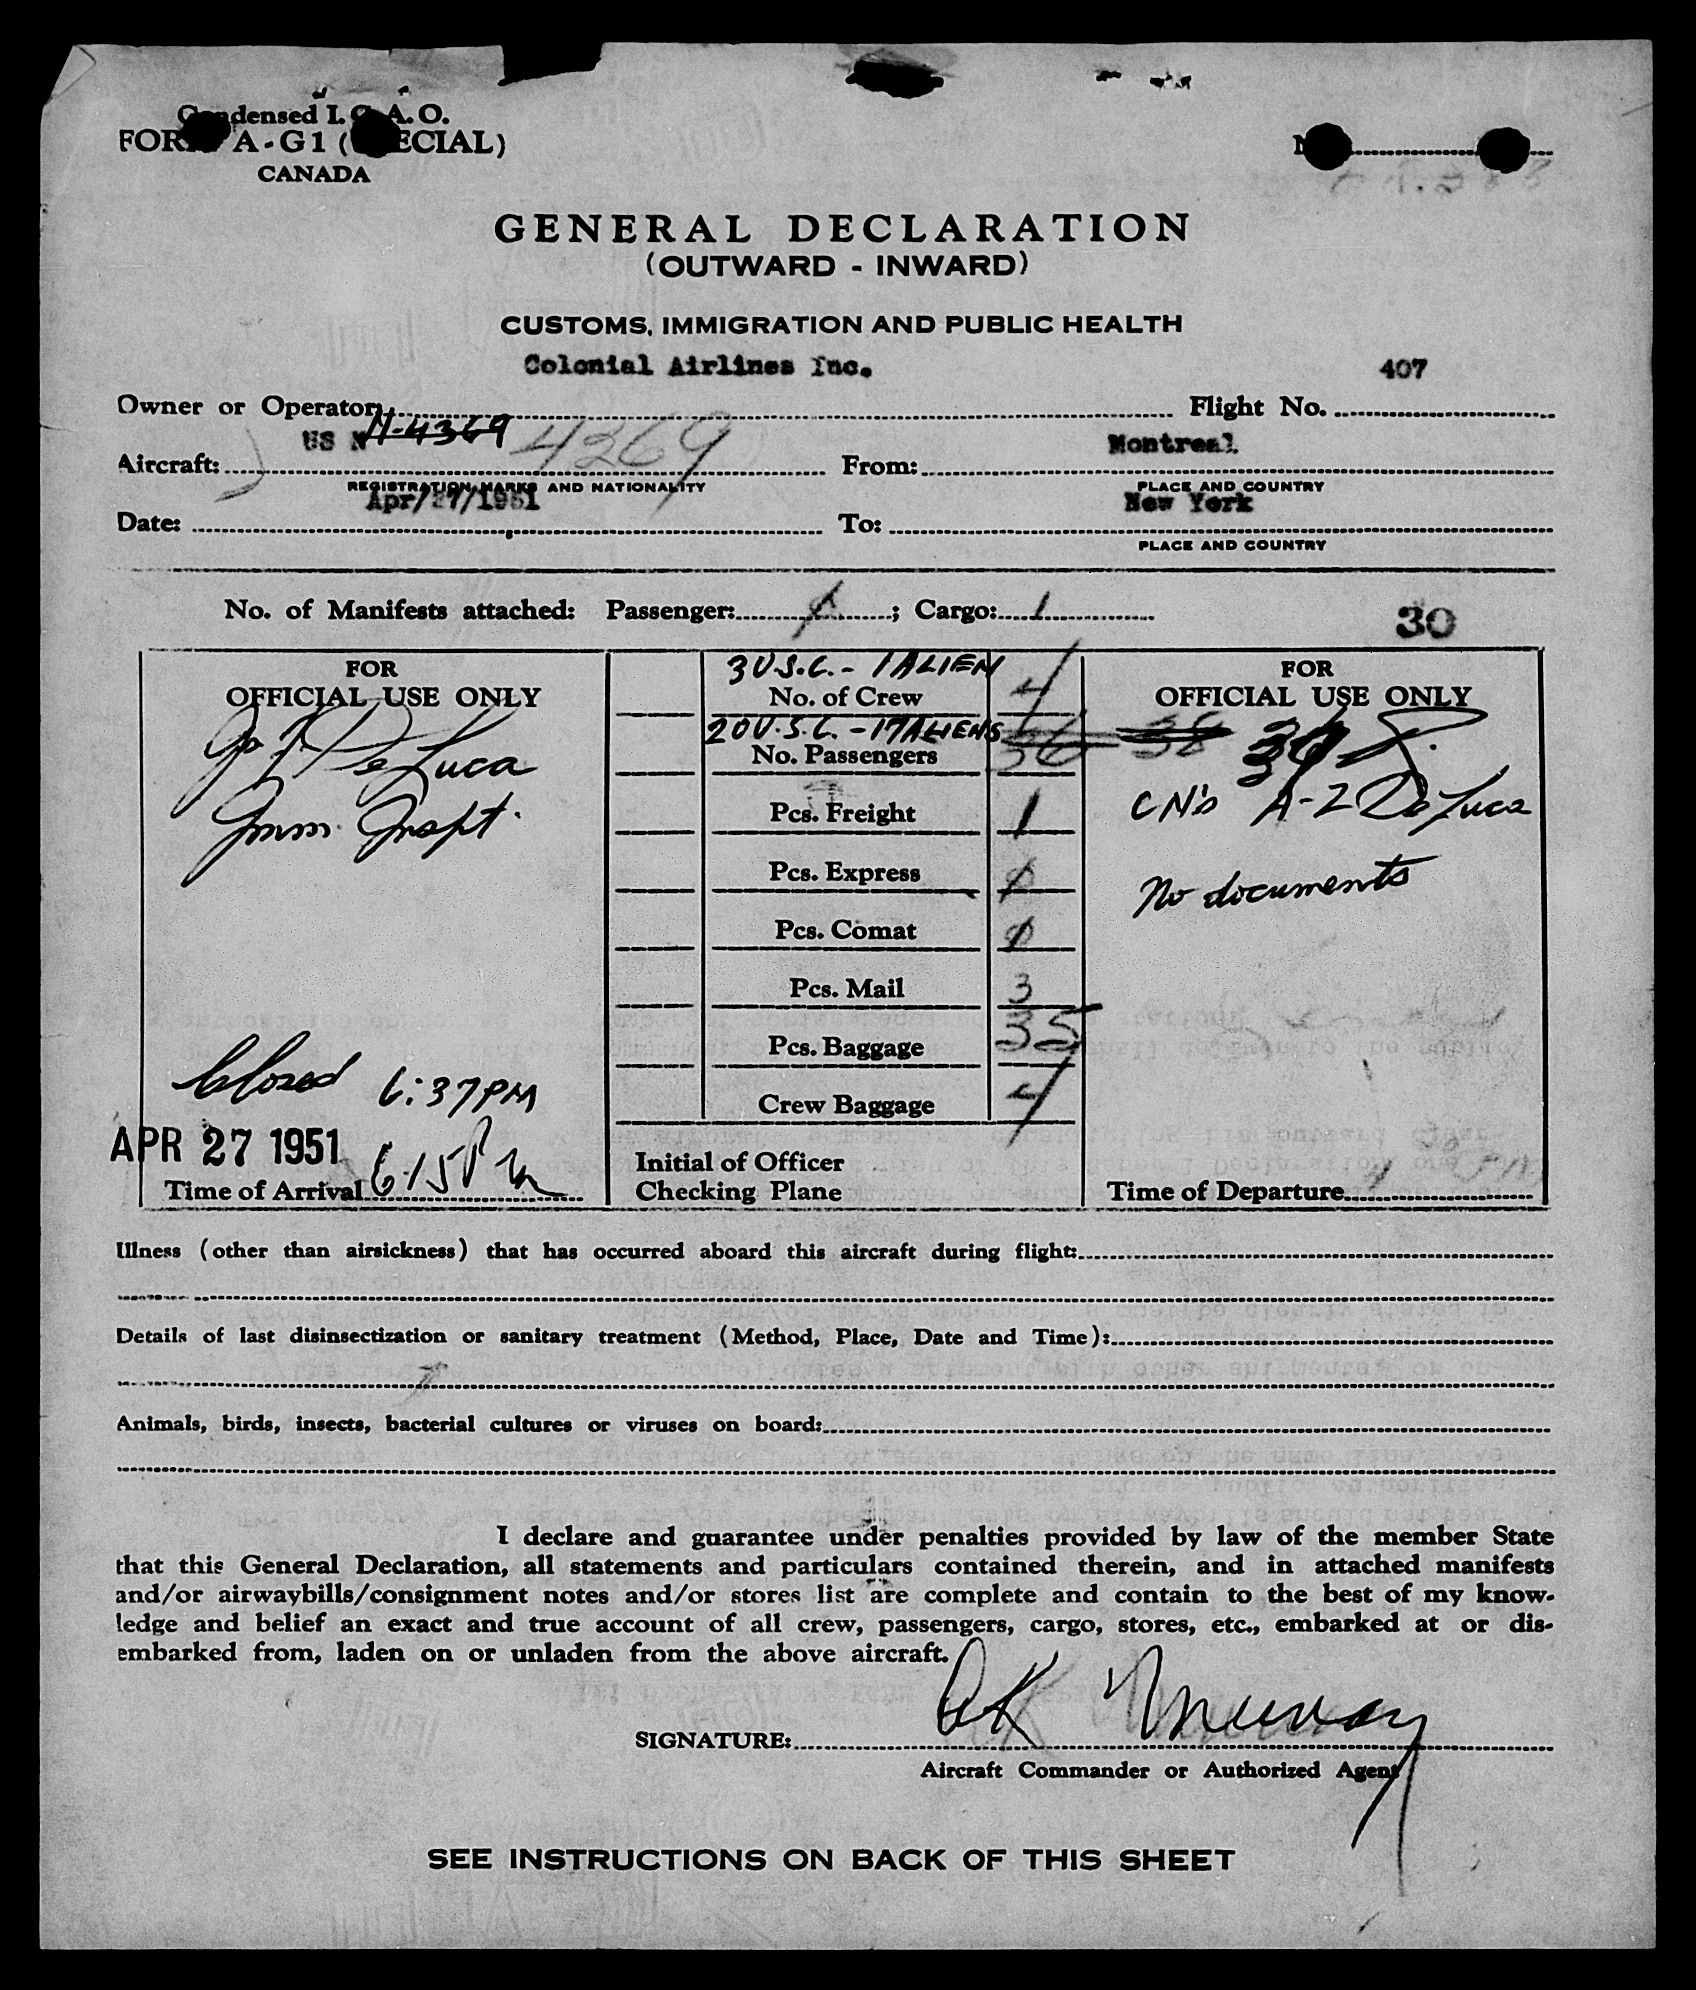 Condensed I.C.A.O.
FORM A-G1 (SPECIAL)
CANADA
GENERAL DECLARATION
(OUTWARD - INWARD)
CUSTOMS, IMMIGRATION AND PUBLIC HEALTH
Colonial Airlines Inc. 407
Owner or Operator: Flight No.
US N N-4369 4369 Montreal
Aircraft: From:
REGISTRATION MARKS AND NATIONALITY PLACE AND COUNTRY
Apr/27/1951 New York
Date: To:
PLACE AND COUNTRY
No. of Manifests attached: Passenger: ; Cargo: 1
30
FOR
OFFICIAL USE ONLY
De Luca
Imm. Inspt.
Closed 6:37 PM
APR 27 1951
Time of Arrival 6:15 Pm
3 U.S.C. - 1 ALIEN
No. of Crew 4
20 U.S.C. - 17 ALIENS
No. Passengers 36
Pcs. Freight 1
Pcs. Express
Pcs. Comat
Pcs. Mail 3
Pcs. Baggage 35
Crew Baggage 4
Initial of Officer
Checking Plane
FOR
OFFICIAL USE ONLY
38
CN's A-2 De Luca
No documents
Time of Departure
Illness (other than airsickness) that has occurred aboard this aircraft during flight:
Details of last disinsectization or sanitary treatment (Method, Place, Date and Time):
Animals, birds, insects, bacterial cultures or viruses on board:
I declare and guarantee under penalties provided by law of the member State
that this General Declaration, all statements and particulars contained therein, and in attached manifests
and/or airwaybills/consignment notes and/or stores list are complete and contain to the best of my know-
ledge and belief an exact and true account of all crew, passengers, cargo, stores, etc., embarked at or dis-
embarked from, laden on or unladen from the above aircraft.
SIGNATURE: AK Murray
Aircraft Commander or Authorized Agent
SEE INSTRUCTIONS ON BACK OF THIS SHEET